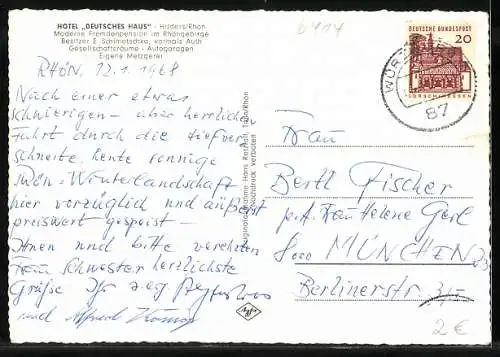 HOTEL „DEUTSCHES HAUS" - Hilders/Rhön
Moderne Fremdenpension im Rhöngebirge
Besitzer E. Schimetschka, vormals Auth
Gesellschaftsräume - Autogaragen
Eigene Metzgerei
6414
DEUTSCHE BUNDESPOST
20
LORSCH/HESSEN
WÜRZ
87
Rhön, 12.1.1968
Nach einer etwas
schwierigen - aber herrlichen
Fahrt durch die tiefver-
schneite, heute sonnige
Rhön-Winterlandschaft
hier vorzüglich und äußerst
preiswert gespeist -
Ihnen und bitte verehrten
Frau Schwester herzlichste
Grüße Ihr
und Alfred
Originalaufnahme Hans Retzlaff, Tann/Rhön
Nachdruck verboten
Agfa
Frau
Bertl Fischer
p.A. Frau Helene Gerl
8000 MÜNCHEN
Berlinerstr.
2€